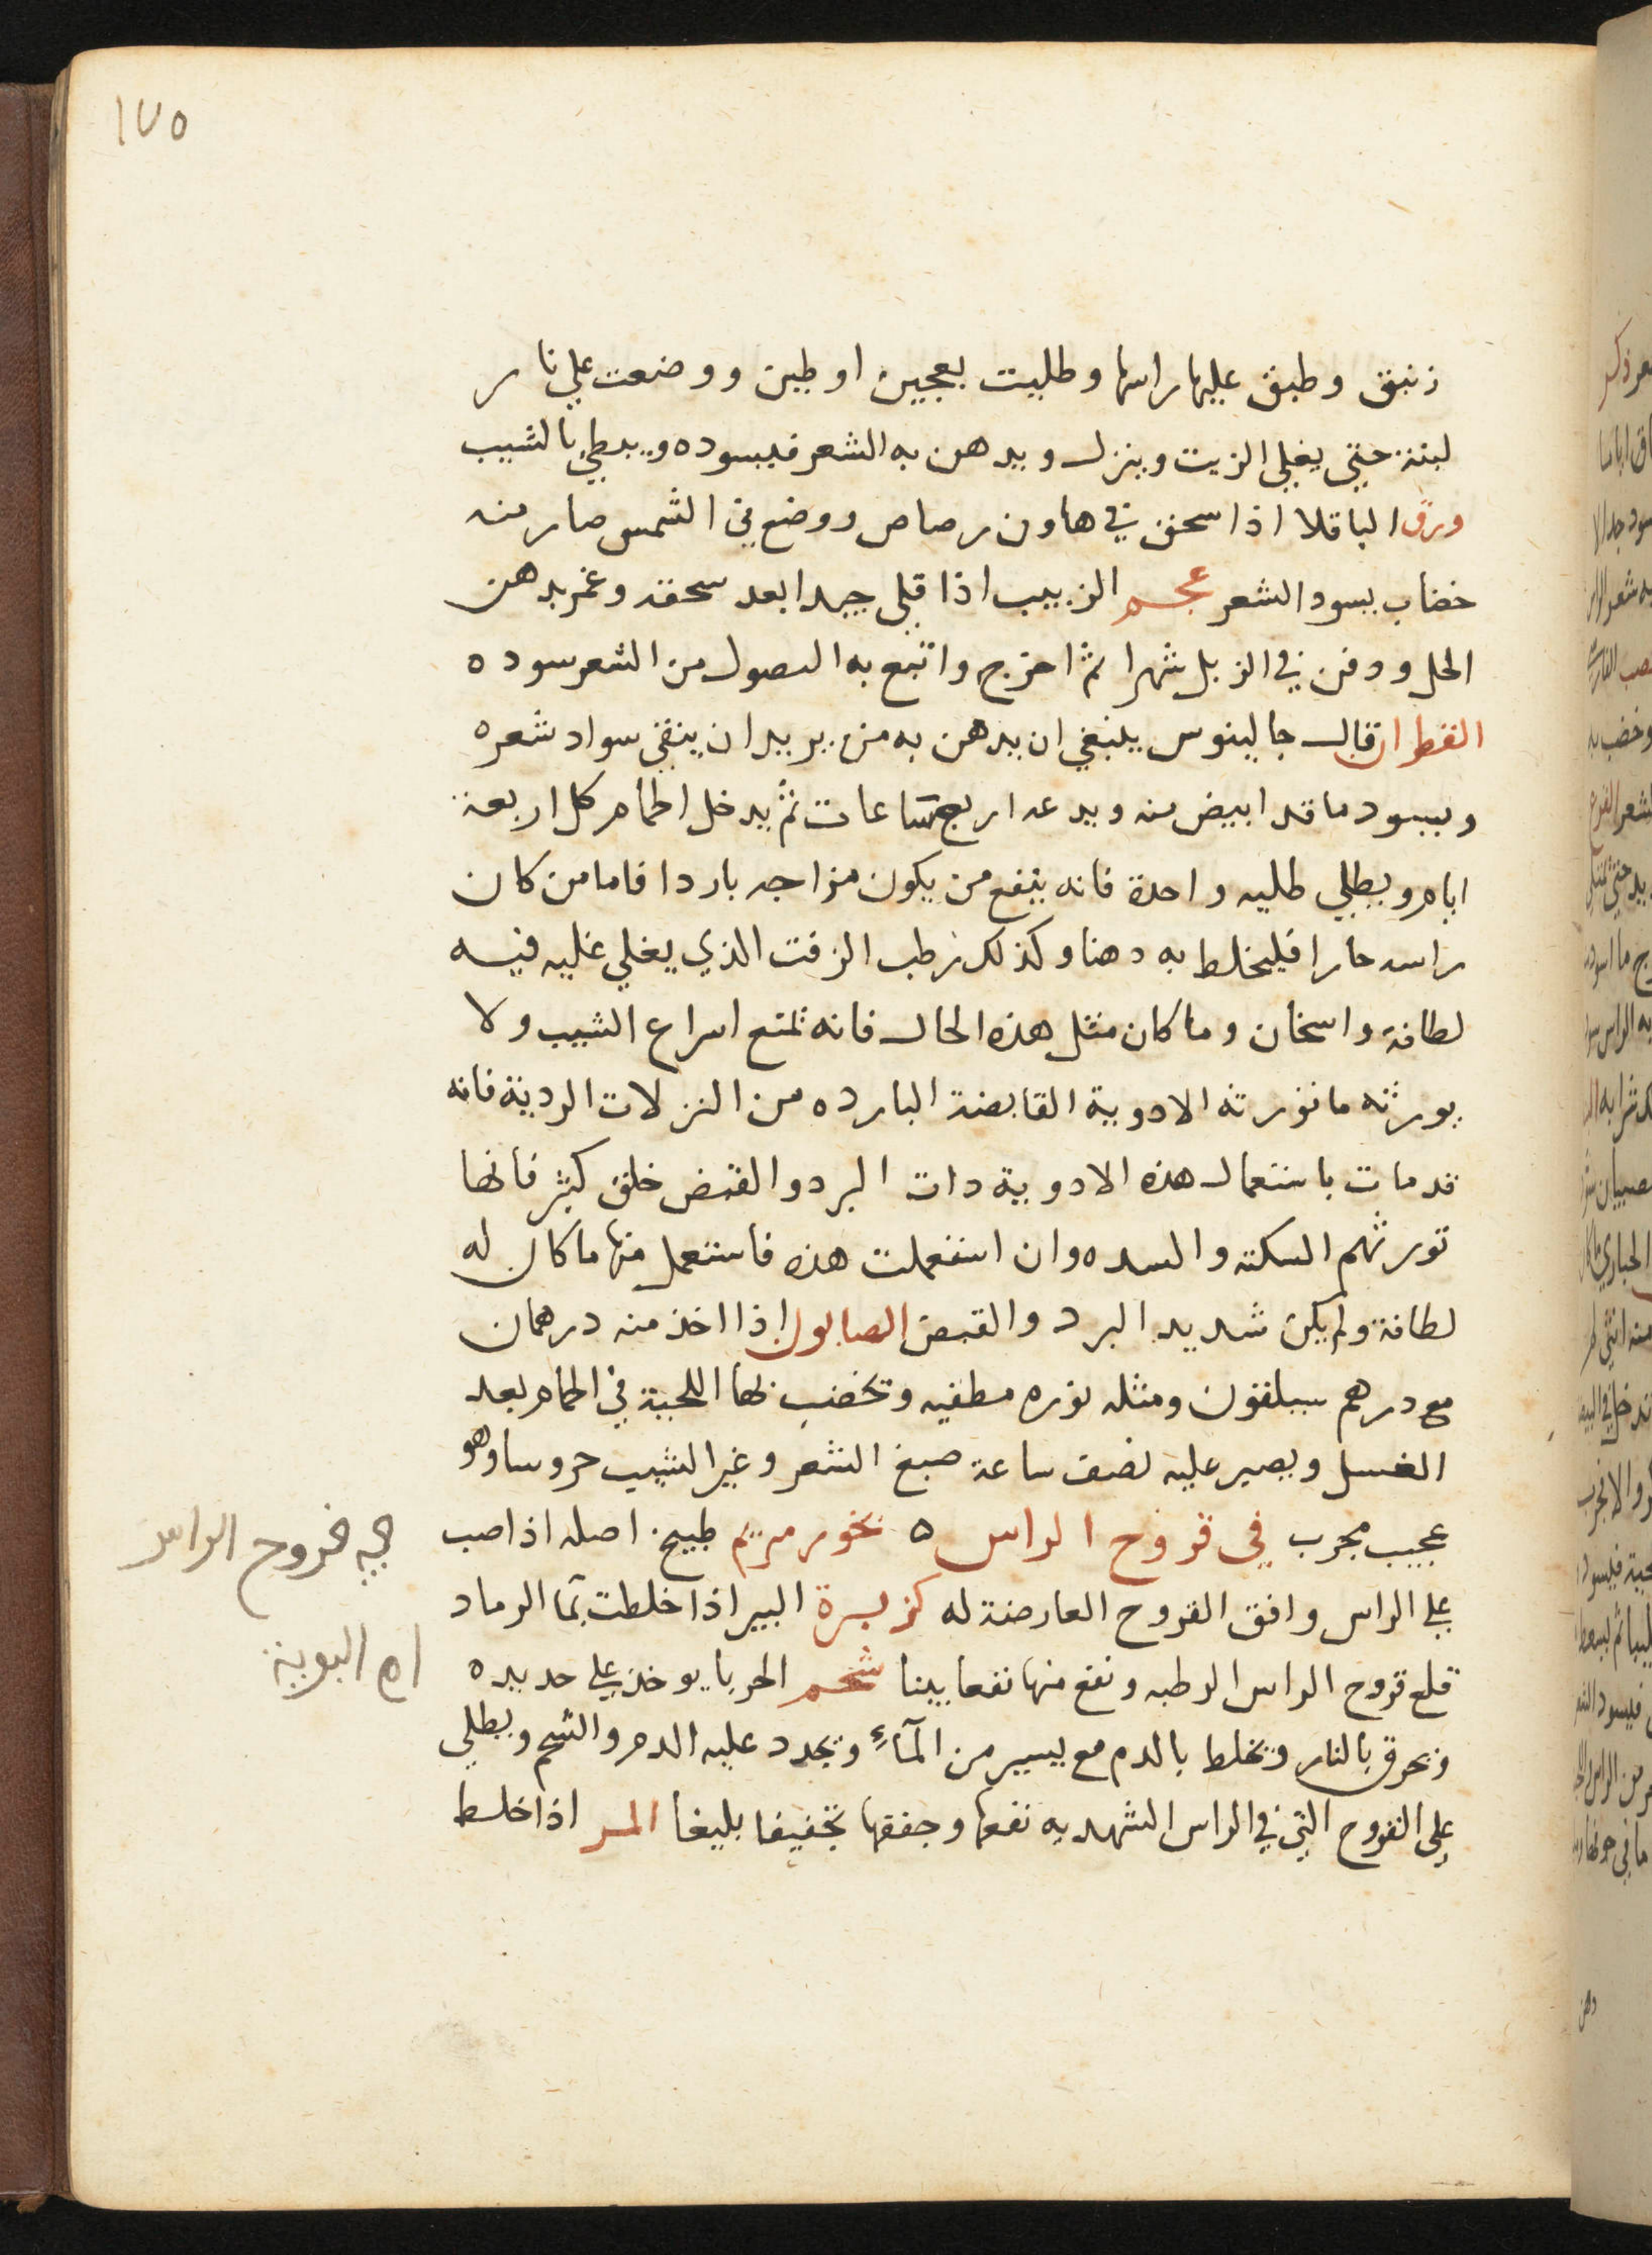 ١٧٥
زنبق وطبق عليها راسها وطليت بعجين او طين ووضعت علي نار
لينة حتي يغلي الزيت وينزل ويدهن به الشعر فيسوده ويبطي بالشيب
ورق الباقلا اذا سحق في هاون رصاص ووضع في الشمس صار منه
خضاب يسود الشعر عجم الزبيب اذا قلي جيدا بعد سحقه وغمر بدهن
الحل ودفن في الزبل شهرا ثم اخرج واتبع به النصول من الشعر سوده
القطران قال جالينوس ينبغي ان يدهن به من يريد ان يبقي سواد شعره
ويسود ما قد ابيض منه ويدعه اربع ساعات ثم يدخل الحمام كل اربعة
ايام ويطلي طليه واحدة فانه ينفع من يكون مزاجه باردا فاما من كان
راسه حارا فليخلط به دهنا وكذلك رطب الزفت الذي يغلي غليه فيه
لطافة واسخان وما كان مثل هذه الحال فانه تمنع اسراع الشيب ولا
يورثه ما تورثه الادوية القابضة البارده من النزلات الردية فانه
قد مات باستعمال هذه الادوية ذات البرد والقبض خلق كثير فانها
تورثهم السكته والسده وان استعملت هذه فاستعمل منها ما كان له
لطافة ولم يكن شديد البرد والقبض الصابون اذا اخذ منه درهمان
مع درهم سيلقون ومثله نوره مطفيه وتخضب بها اللحية في الحمام بعد
الغسل ويصير عليه نصف ساعة صبغ الشعر وغير الشيب حروسا وهو
عجيب مجرب في قروح الراس ه بخور مريم طبيخ اصله اذا صب
علي الراس وافق القروح العارضة له كزبرة البير اذا خلطت بما الرماد
قلع قروح الراس الرطبه ونفع منها نفعا بينا شحم الحربا يوخذ علي حديده
وتحرق بالنار ويخلط بالدم مع يسير من المآء ويجدد عليه الدم والشحم ويطلي
علي القروح التي في الراس الشهديه نفعها وجففها تجفيفا بليغا المر اذا خلط
في قروح الراس